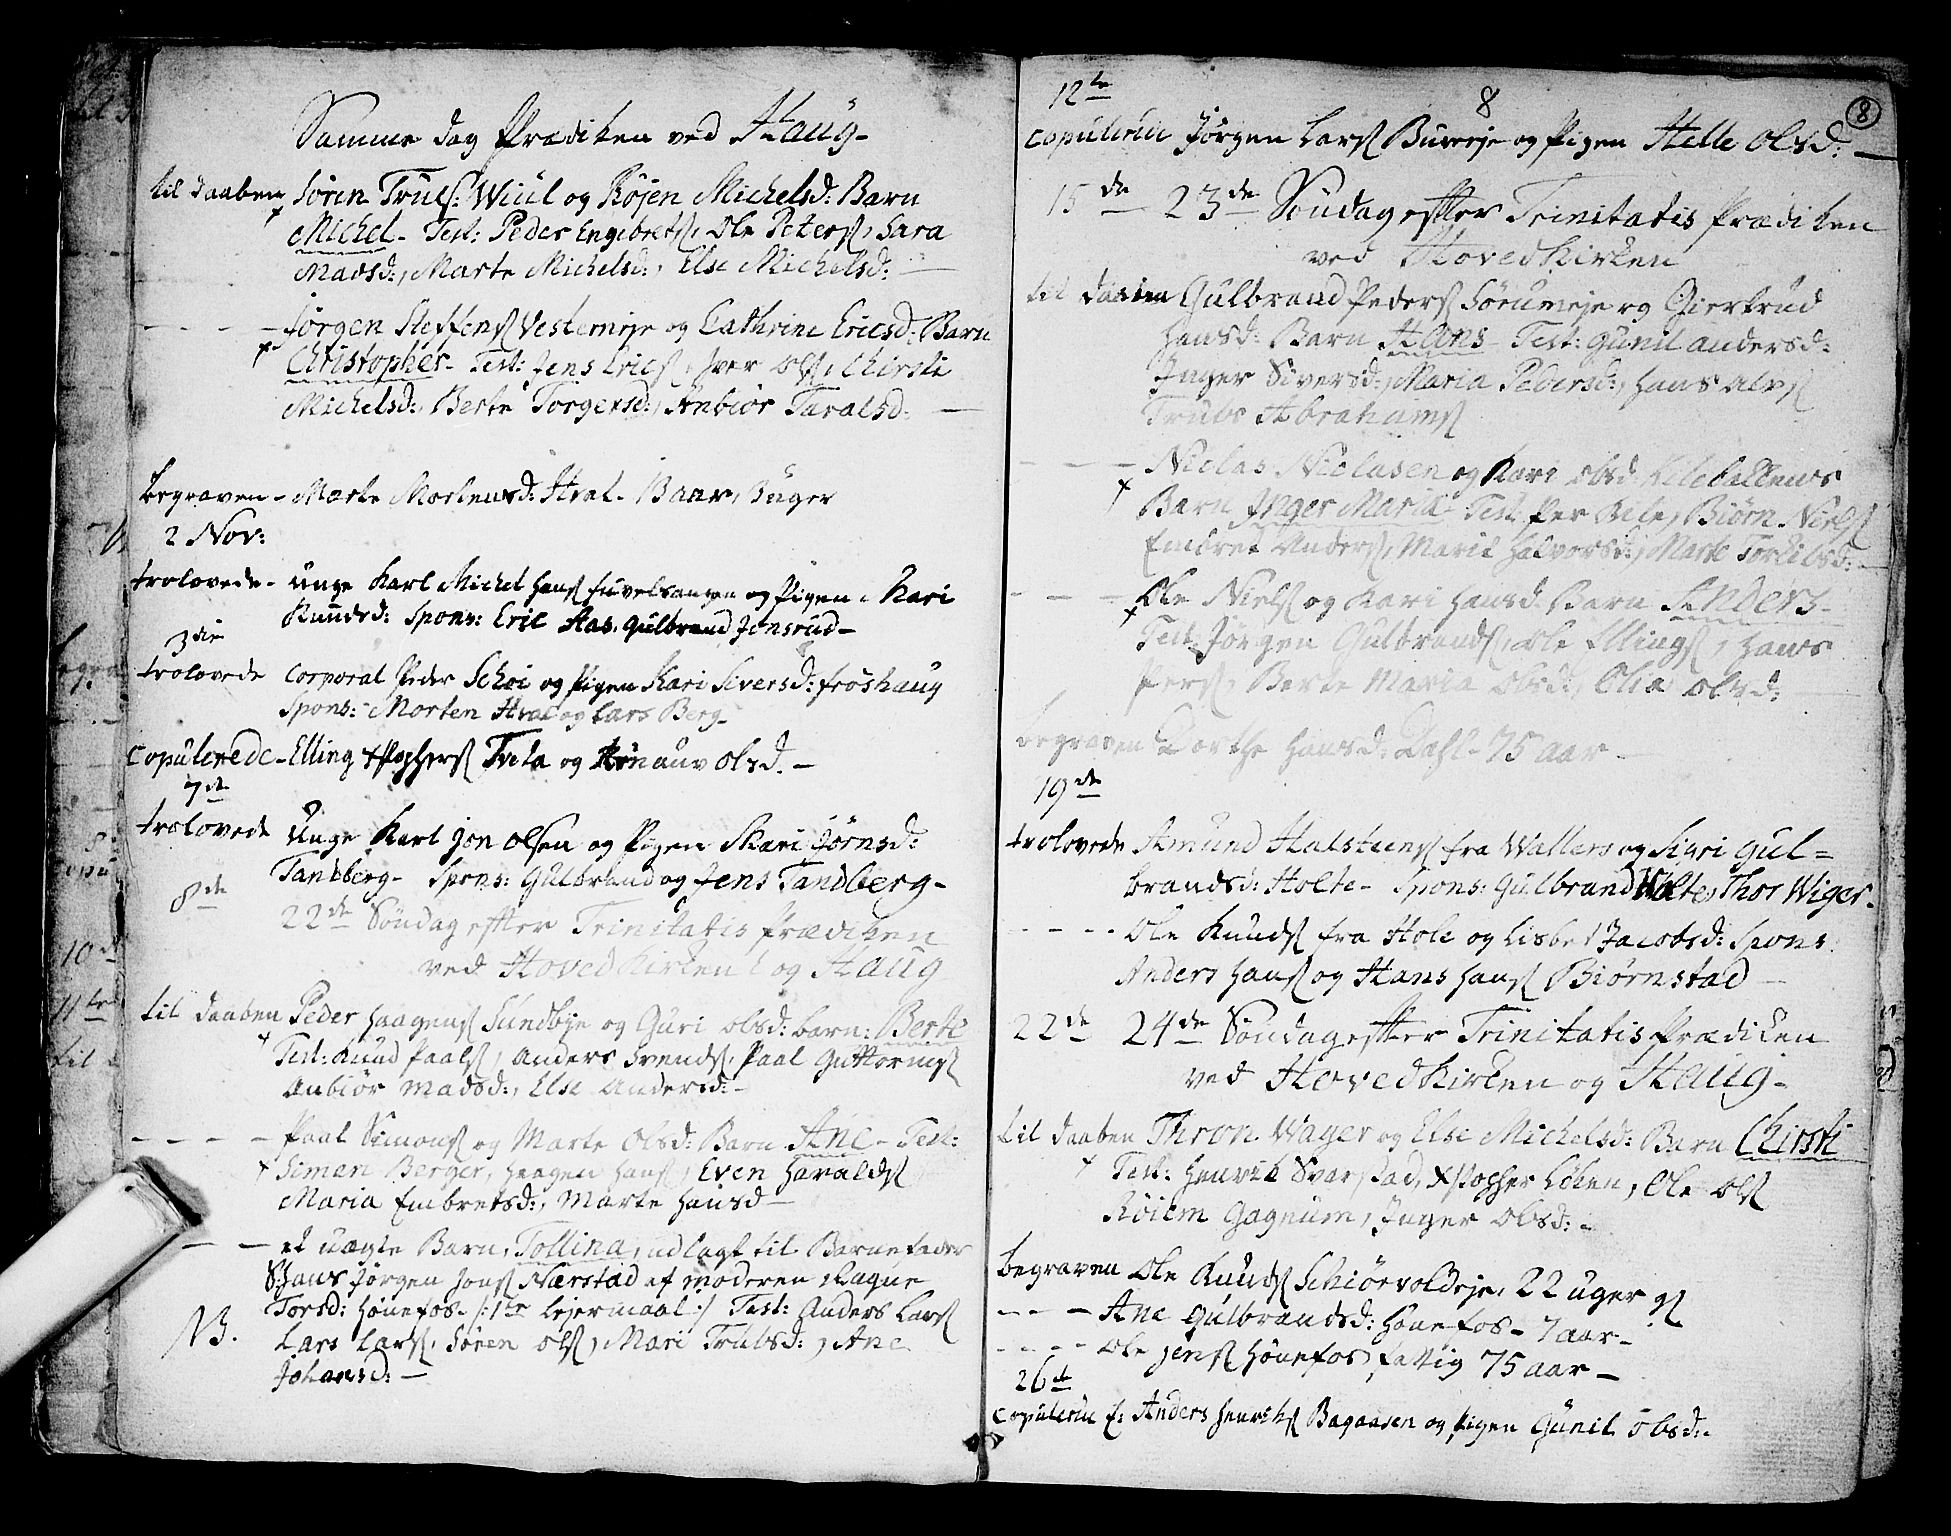 Samme dag Prædiken ved Haug-
til daaben Søren Truls: Wiul og Røjen Michelsd: Barn
Michel- Test: Peder Engebrets, Ole Peters, Sara
Madsd:, Marte Michelsd:, Else Michelsd:
- - - - Jørgen Steffens Vesterneje og Cathrine Ericsd: Barn
Christopher- Test: Jens Erics, Iver Ols, Chirsti
Michelsd:, Berte Torgersd:, Anbiør Taralsd: -
begraven - Marte Mortensd: Hval- 13 aar, 3 uger
2 Nov:
trolovede- unge Karl Michel Hans og Pigen Kari
Knudsd: Spons: Eric Aas, Gulbrand Jonsrud-
3die
trolovede Corporal Peder Schoi og Pigen Kari Siversd: frøshaug
Spons: Morten Hval og Lars Berg-
Copulerede- Elling Xstophers Tveta og Rønauv Olsd. -
7de
trolovede unge Karl Jon Olsen og Pigen Kari Jørnsd:
Tandberg- Spons: Gulbrand og Jens Tandberg-
8de
22de Søndag effter Trinitatis Prædiken
ved Hoved Kirken og Haug
til daaben Peder Haagens Sundbye og Guri Olsd: barn: Berte
Test: Knud Paals, Anders Svends, Paal Guttorms
Anbiør Madsd:, Else Andersd: -
- - - - Paal Simons og Marte Olsd: Barn Ane- Test:
Simen Berger, Haagen Hans, Even Haralds
Maria Embretsd:, Marte Hansd-
- - et uægte Barn, Tollina, udlagt til Barnefader
Hans Jørgen Jons Nærstad af moderen, Ragne
NB. Torsd: Hønefos- /:1te Lejermaal:/ Test: Anders Lars
Lars Lars, Søren Ols, Mari Trulsd:, Ane
Johansd: -
8
8
12te
Copulerede Jørgen Lars Bureje og Pigen Helle Olsd: -
15de 23de Søndag effter Trinitatis Prædiken
ved Hoved Kirken
til daaben Gulbrand Peders Sørumeje og Giertrud
Hansd: Barn Hans- Test: Gunil Andersd:
Inger Siversd:, Maria Pedersd:, Hans Alvs
Truls Abrahams
- - - Niclas Niclasen og Kari Olsd:
Barn Inger Maria- Test: Per Bile, Biørn Niels
Embret Anders, Marit Halvorsd:, Marte Torkilsd: -
- - - Ole Niels og Kari Hansd: Barn Anders-
Test: Jørgen Gulbrands, Ole Ellings, Hans
Pers, Berte Maria Olsd:, Olia Olsd:
begraven Dorthe Hansd: Dahl- 75 aar -
19de
trolovede Amund Halsteens fra Wallers og Kari Gul=
brandsd: Holte- Spons: Gulbrand Holte, Thor Wiger-
- - - - Ole Knuds fra Hole og Lisbet Jacobsd: Spons:
Anders Hans og Hans Hans Biørnstad -
22de 24de Søndag effter Trinitatis Prædiken
ved Hoved Kirken og Haug-
til daaben Thron Wager og Else Michelsd: Barn Chirsti
Test: Henrik Svarstad, Xstopher Løken, Ole Ols
Røiem Gagnum, Inger Olsd: -
begraven Ole Knuds Schiørvoldeje, 22 uger gl
- - - Ane Gulbrandsd: Hønefos- 7 aar-
- - - - Ole Jens Hønefos, fattig 75 aar -
26de
Copulerede E: Anders Henriks Bagaasen og Pigen Gunil Olsd: -